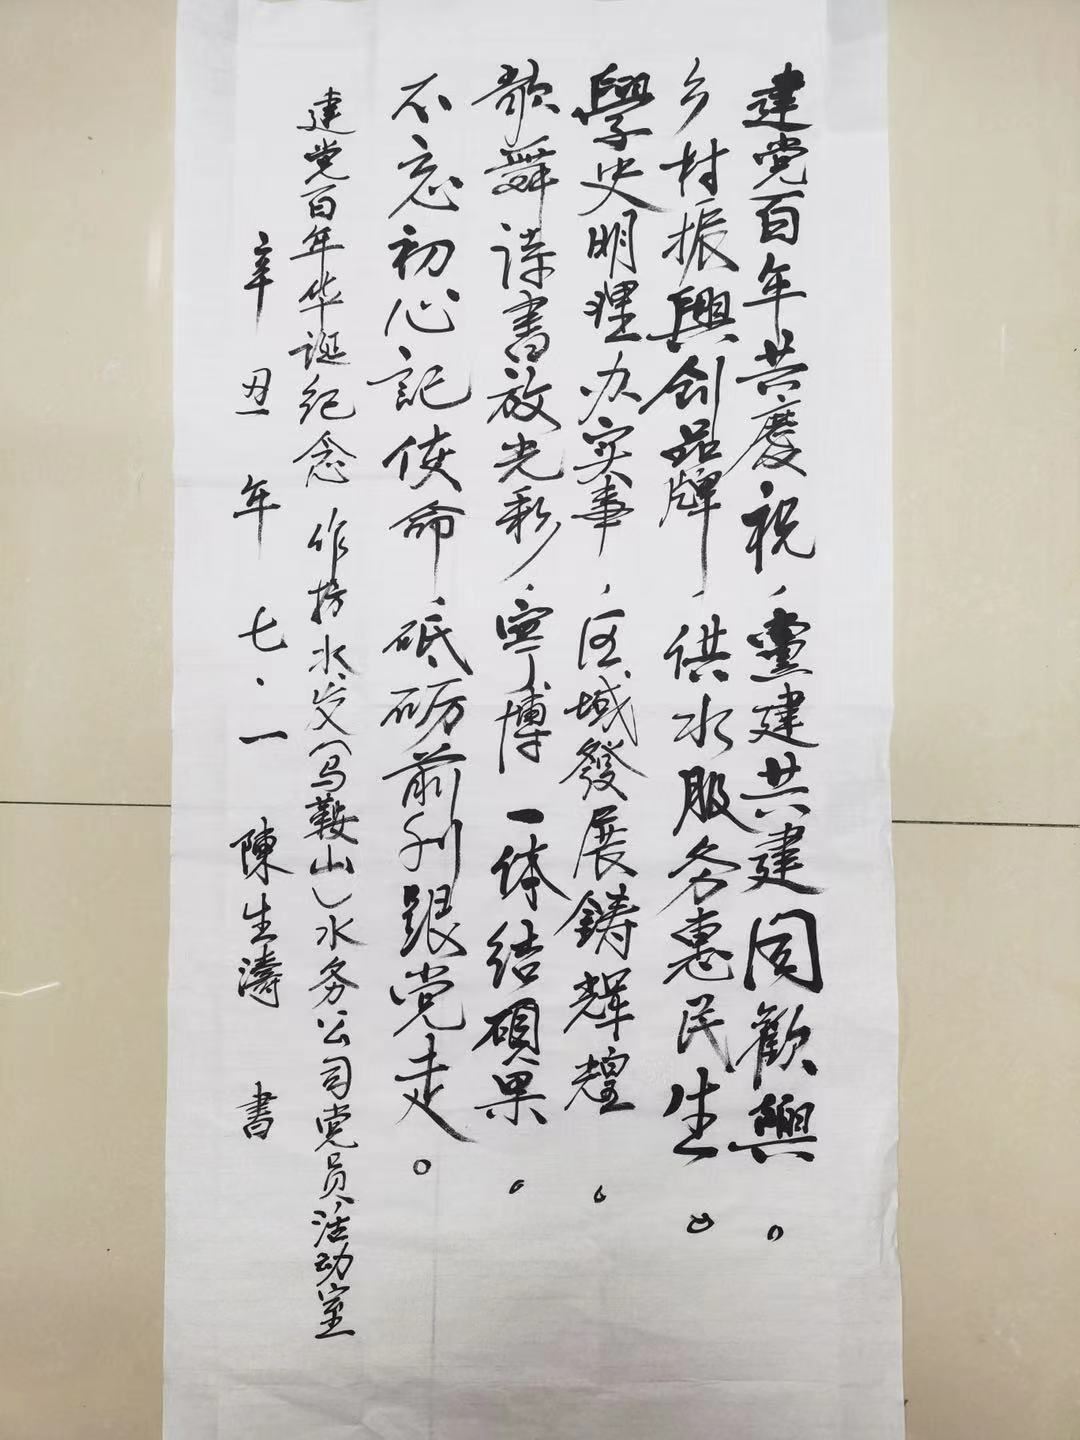 建党百年共慶祝，黨建共建同歡興。
乡村振興創品牌，供水服务惠民生。
學史明理办实事，区域發展鑄輝煌。
歌舞诗書放光彩，寧博一体结碩果。
不忘初心記使命，砥砺前列跟党走。
建党百年华诞纪念 作於水发（马鞍山）水务公司党员活动室
辛丑年七·一 陳生濤 書